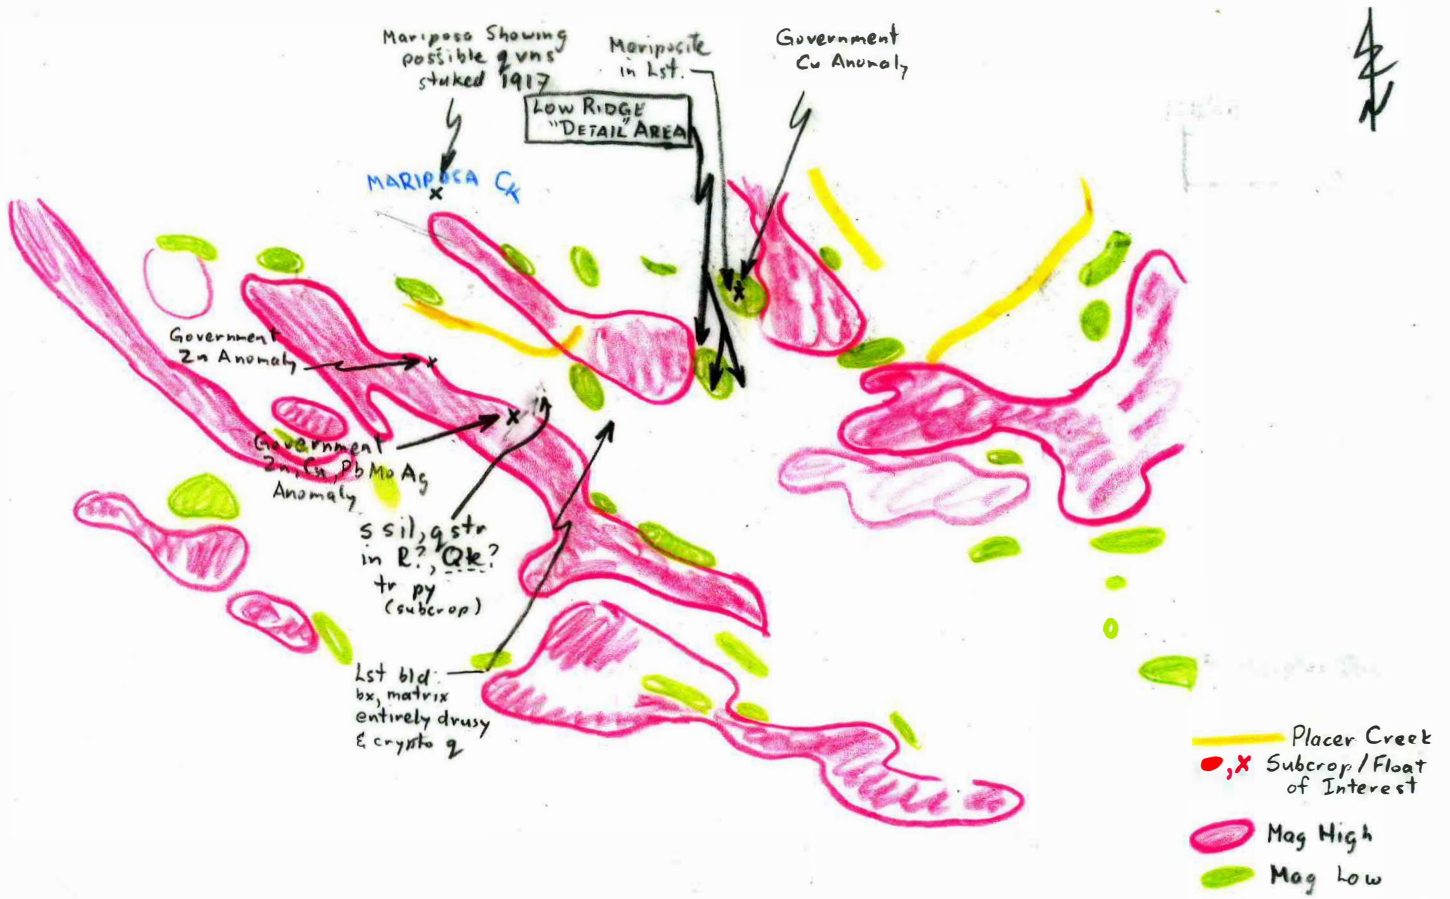 Mariposa Showing
possible qvns
staked 1917
Mariposite
in Lst.
Government
Cu Anomaly
LOW RIDGE
"DETAIL" AREA
MARIPOSA CK
Government
Zn Anomaly
Government
Zn, Cu, Pb Mo Ag
Anomaly
s sil, q str
in R?, Qtz?
tr py
(subcrop)
Lst bld:
bx, matrix
entirely drusy
& crypto q
Placer Creek
Subcrop/Float
of Interest
Mag High
Mag Low